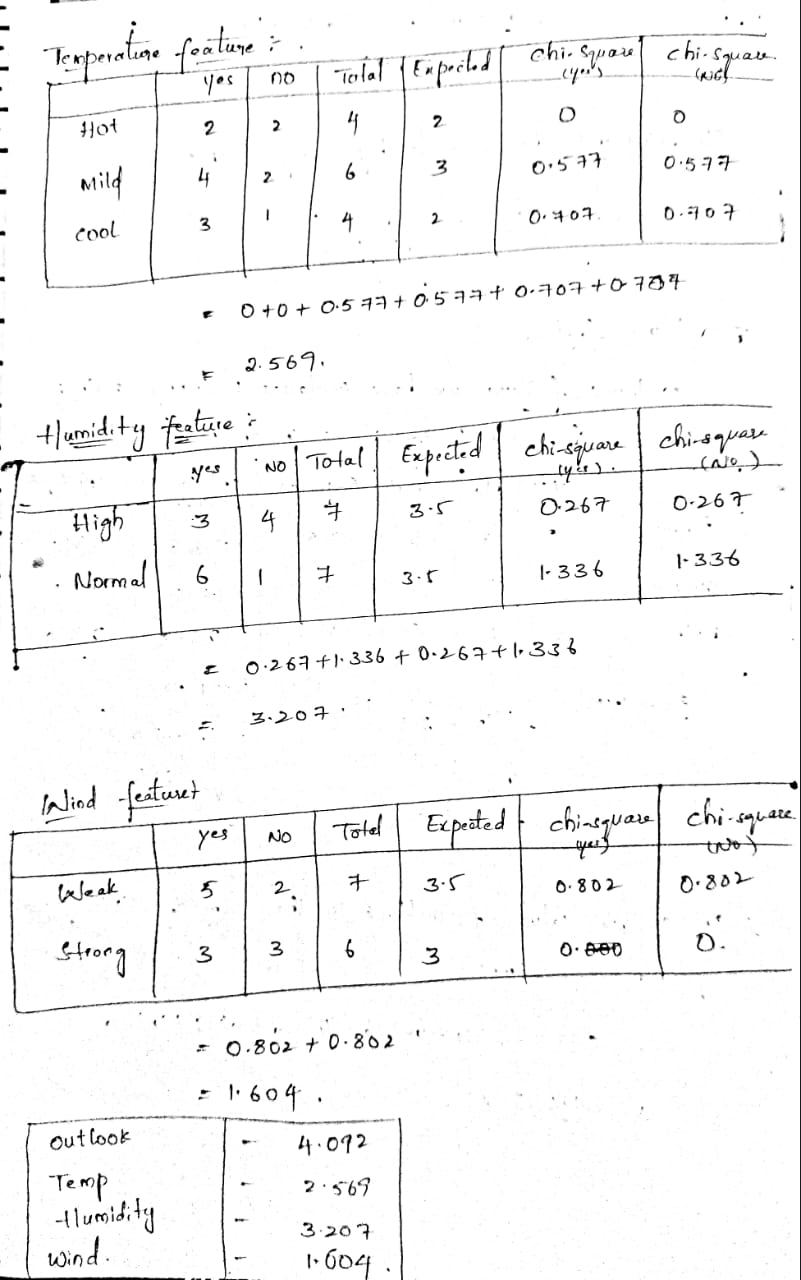 Temperature feature :-
yes no Total Expected chi-square (yes) chi-square (no)
Hot 2 2 4 2 0 0
Mild 4 2 6 3 0.577 0.577
cool 3 1 4 2 0.707 0.707
= 0+0+0.577+0.577+0.707+0.707
= 2.569.
Humidity feature :-
yes NO Total Expected chi-square (yes) chi-square (No)
High 3 4 7 3.5 0.267 0.267
Normal 6 1 7 3.5 1.336 1.336
= 0.267+1.336+0.267+1.336
= 3.207.
Wind feature
yes NO Total Expected chi-square (yes) chi-square (No)
Weak 5 2 7 3.5 0.802 0.802
Strong 3 3 6 3 0. 0.
= 0.802+0.802
= 1.604.
outlook - 4.092
Temp - 2.569
Humidity - 3.207
wind. - 1.604.